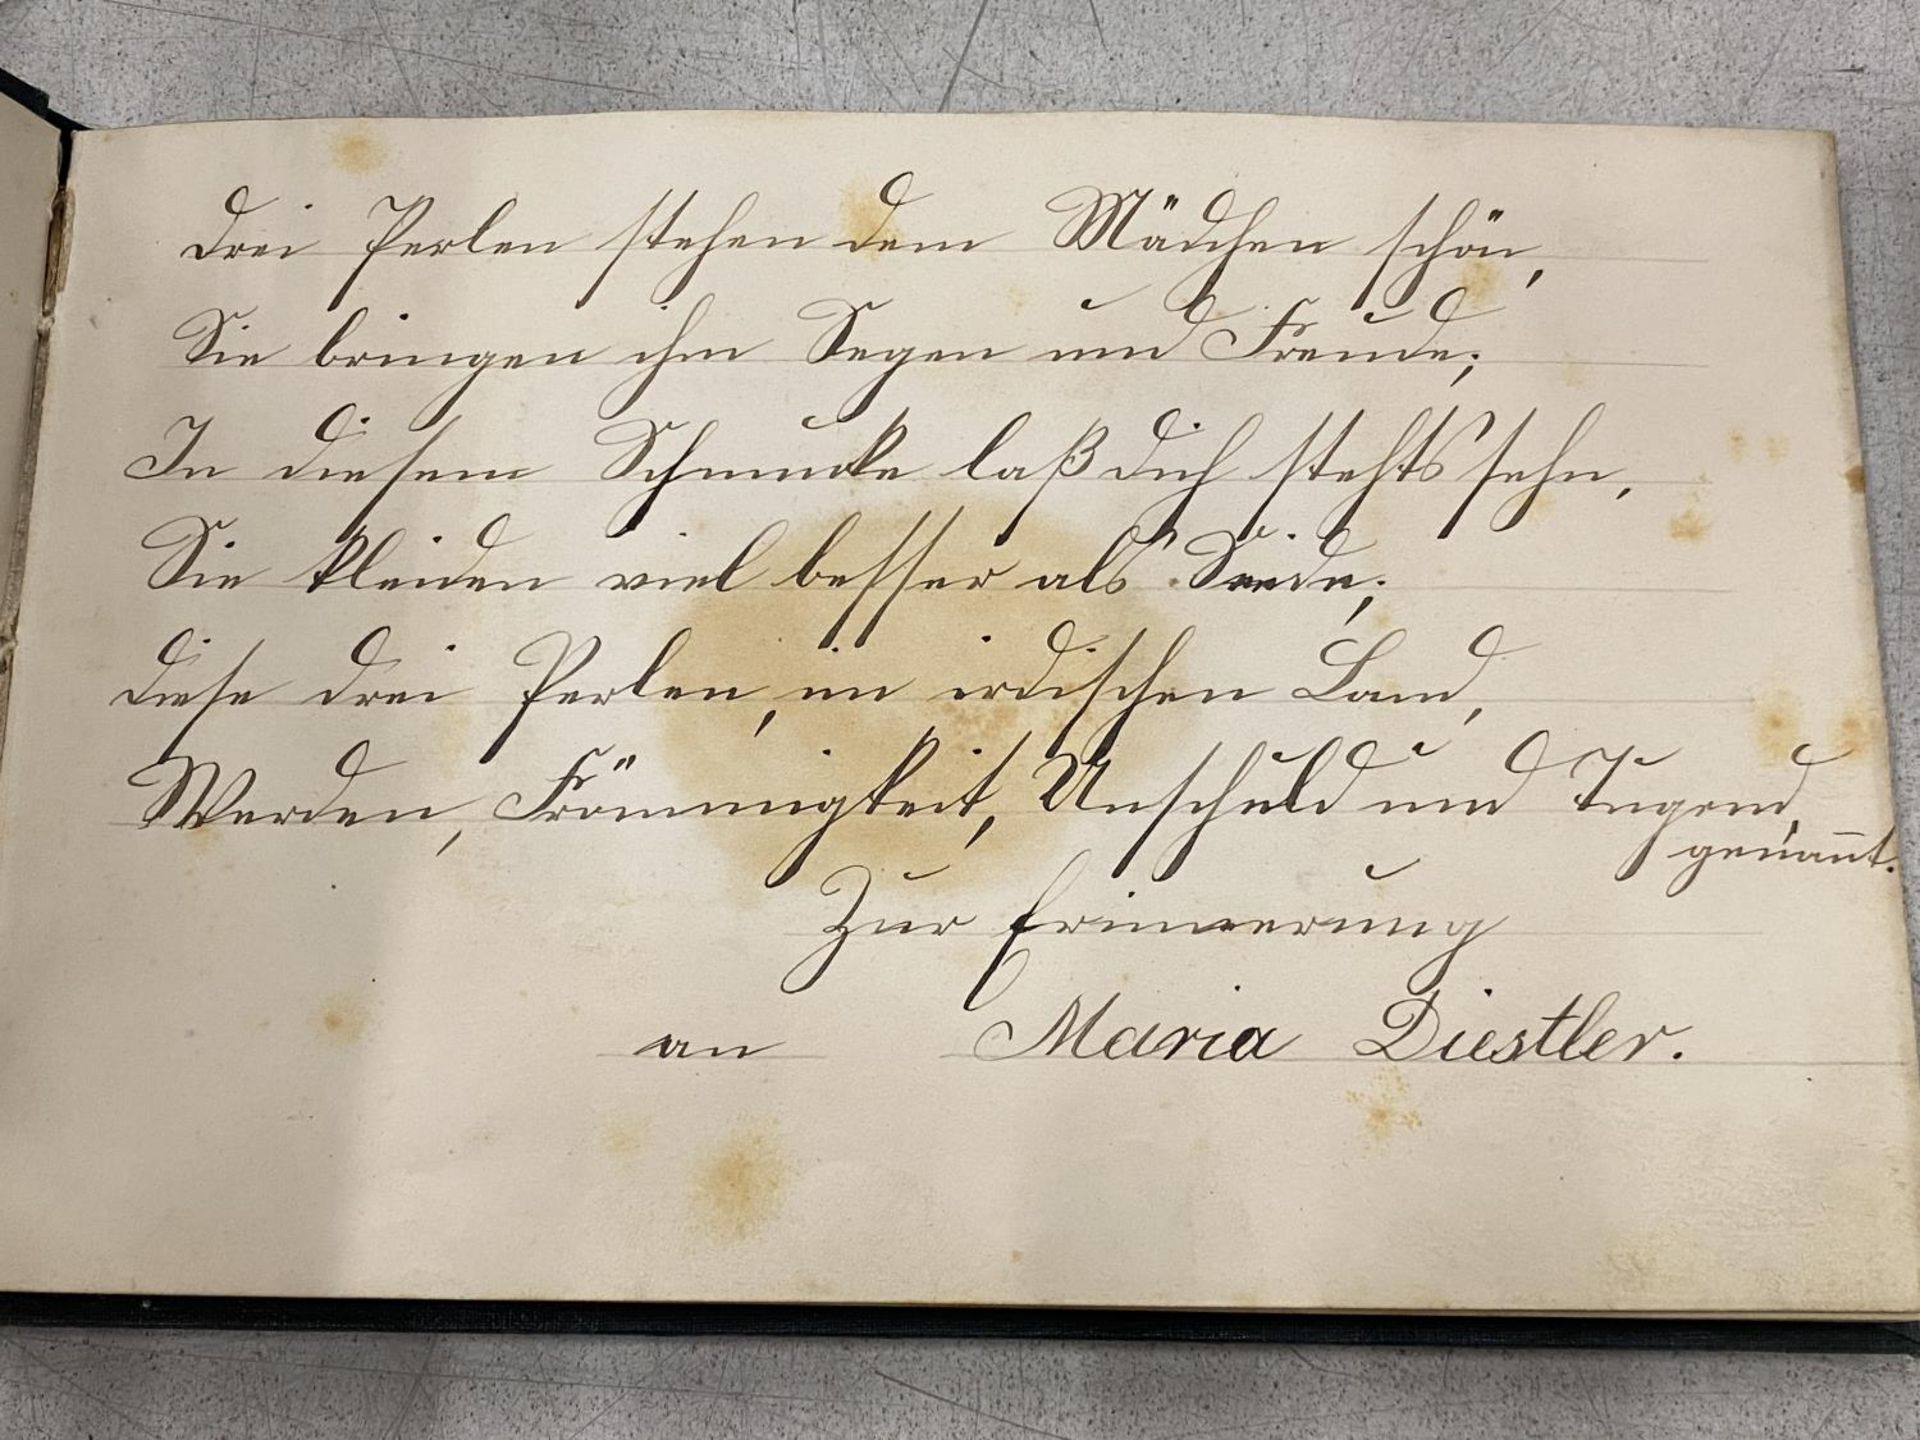 Drei Perlen stehen dem Mädchen schön,
Sie bringen ihm Segen und Freude;
In diesem Schmucke laß dich stehts sehn,
Sie kleiden viel besser als Seide;
Diese drei Perlen, im irdischen Land,
Werden, Frömmigkeit, Unschuld und Tugend,
genan̄t.
Zur Erinnerung
an Maria Diestler.